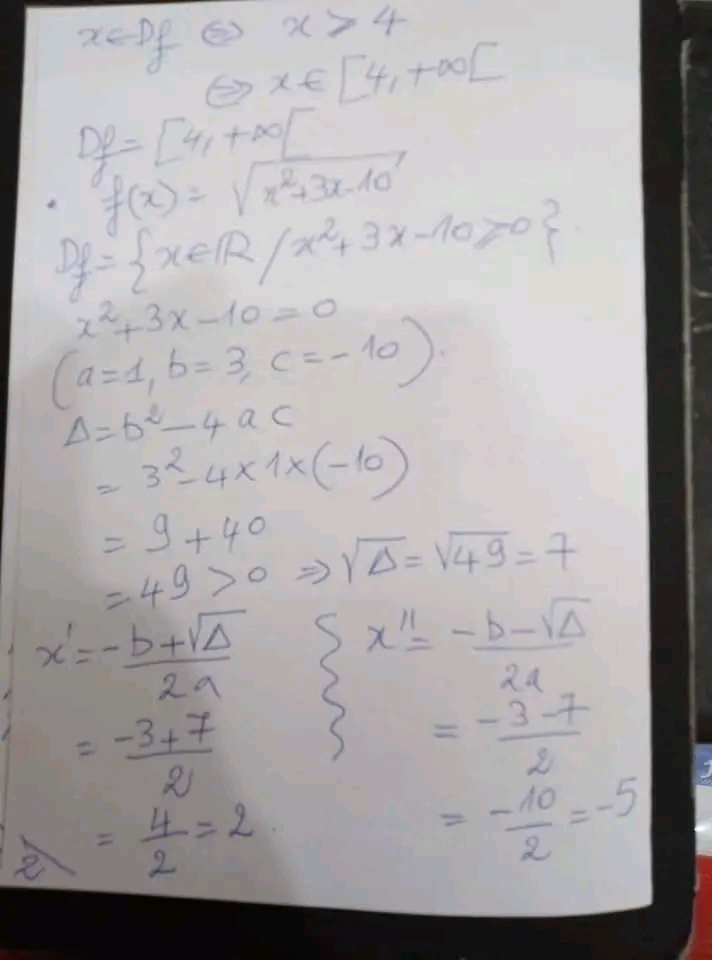 x∈Df ⇔ x ⩾ 4
⇔ x ∈ [4, +∞[
Df = [4, +∞[
• f(x) = √(x²+3x-10)
Df = {x∈ℝ / x²+3x-10 ⩾ 0}.
x²+3x-10 = 0
(a=1, b=3, c=-10).
Δ = b² - 4ac
= 3² - 4×1×(-10)
= 9 + 40
= 49 > 0 ⇒ √Δ = √49 = 7
x' = (-b+√Δ)/2a } x'' = (-b-√Δ)/2a
= (-3+7)/2 = (-3-7)/2
= 4/2 = 2. = -10/2 = -5
2